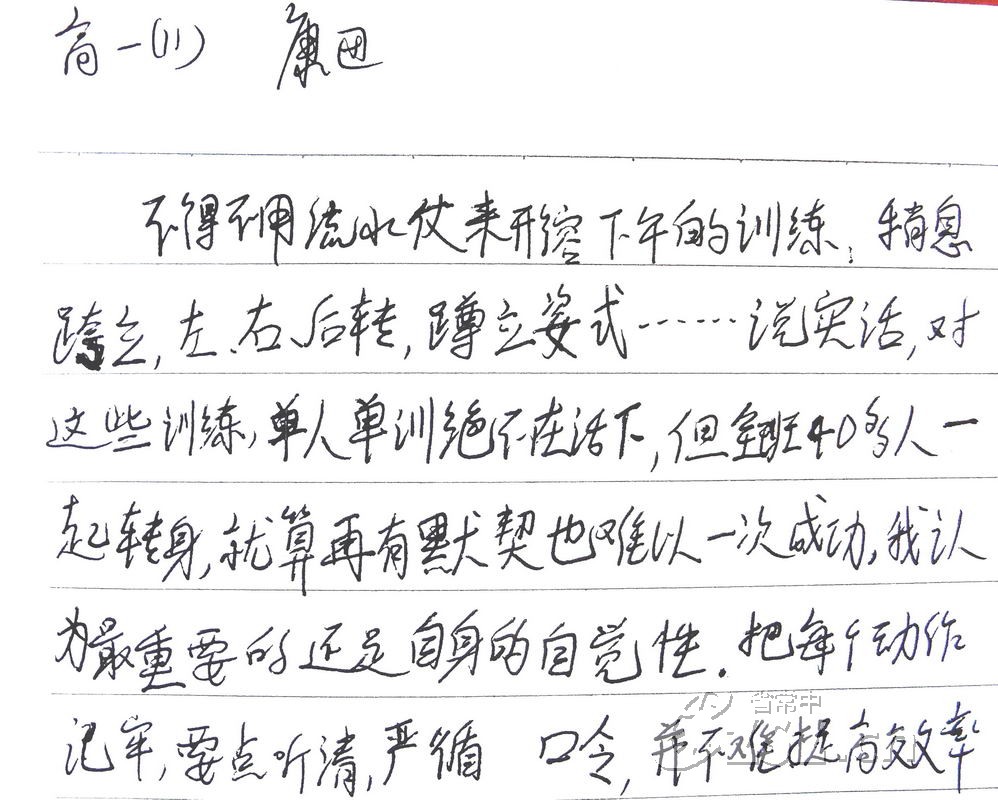 高一(11) 康田
不得不用流水仗来形容下午的训练:稍息
跨立,左、右、后转,蹲立姿式……说实话,对
这些训练,单人单训绝不在话下,但全班40多人一
起转身,就算再有默契也难以一次成功,我认
为最重要的还是自身的自觉性.把每个动作
记牢,要点听清,严循 口令,并不难提高效率
省常中